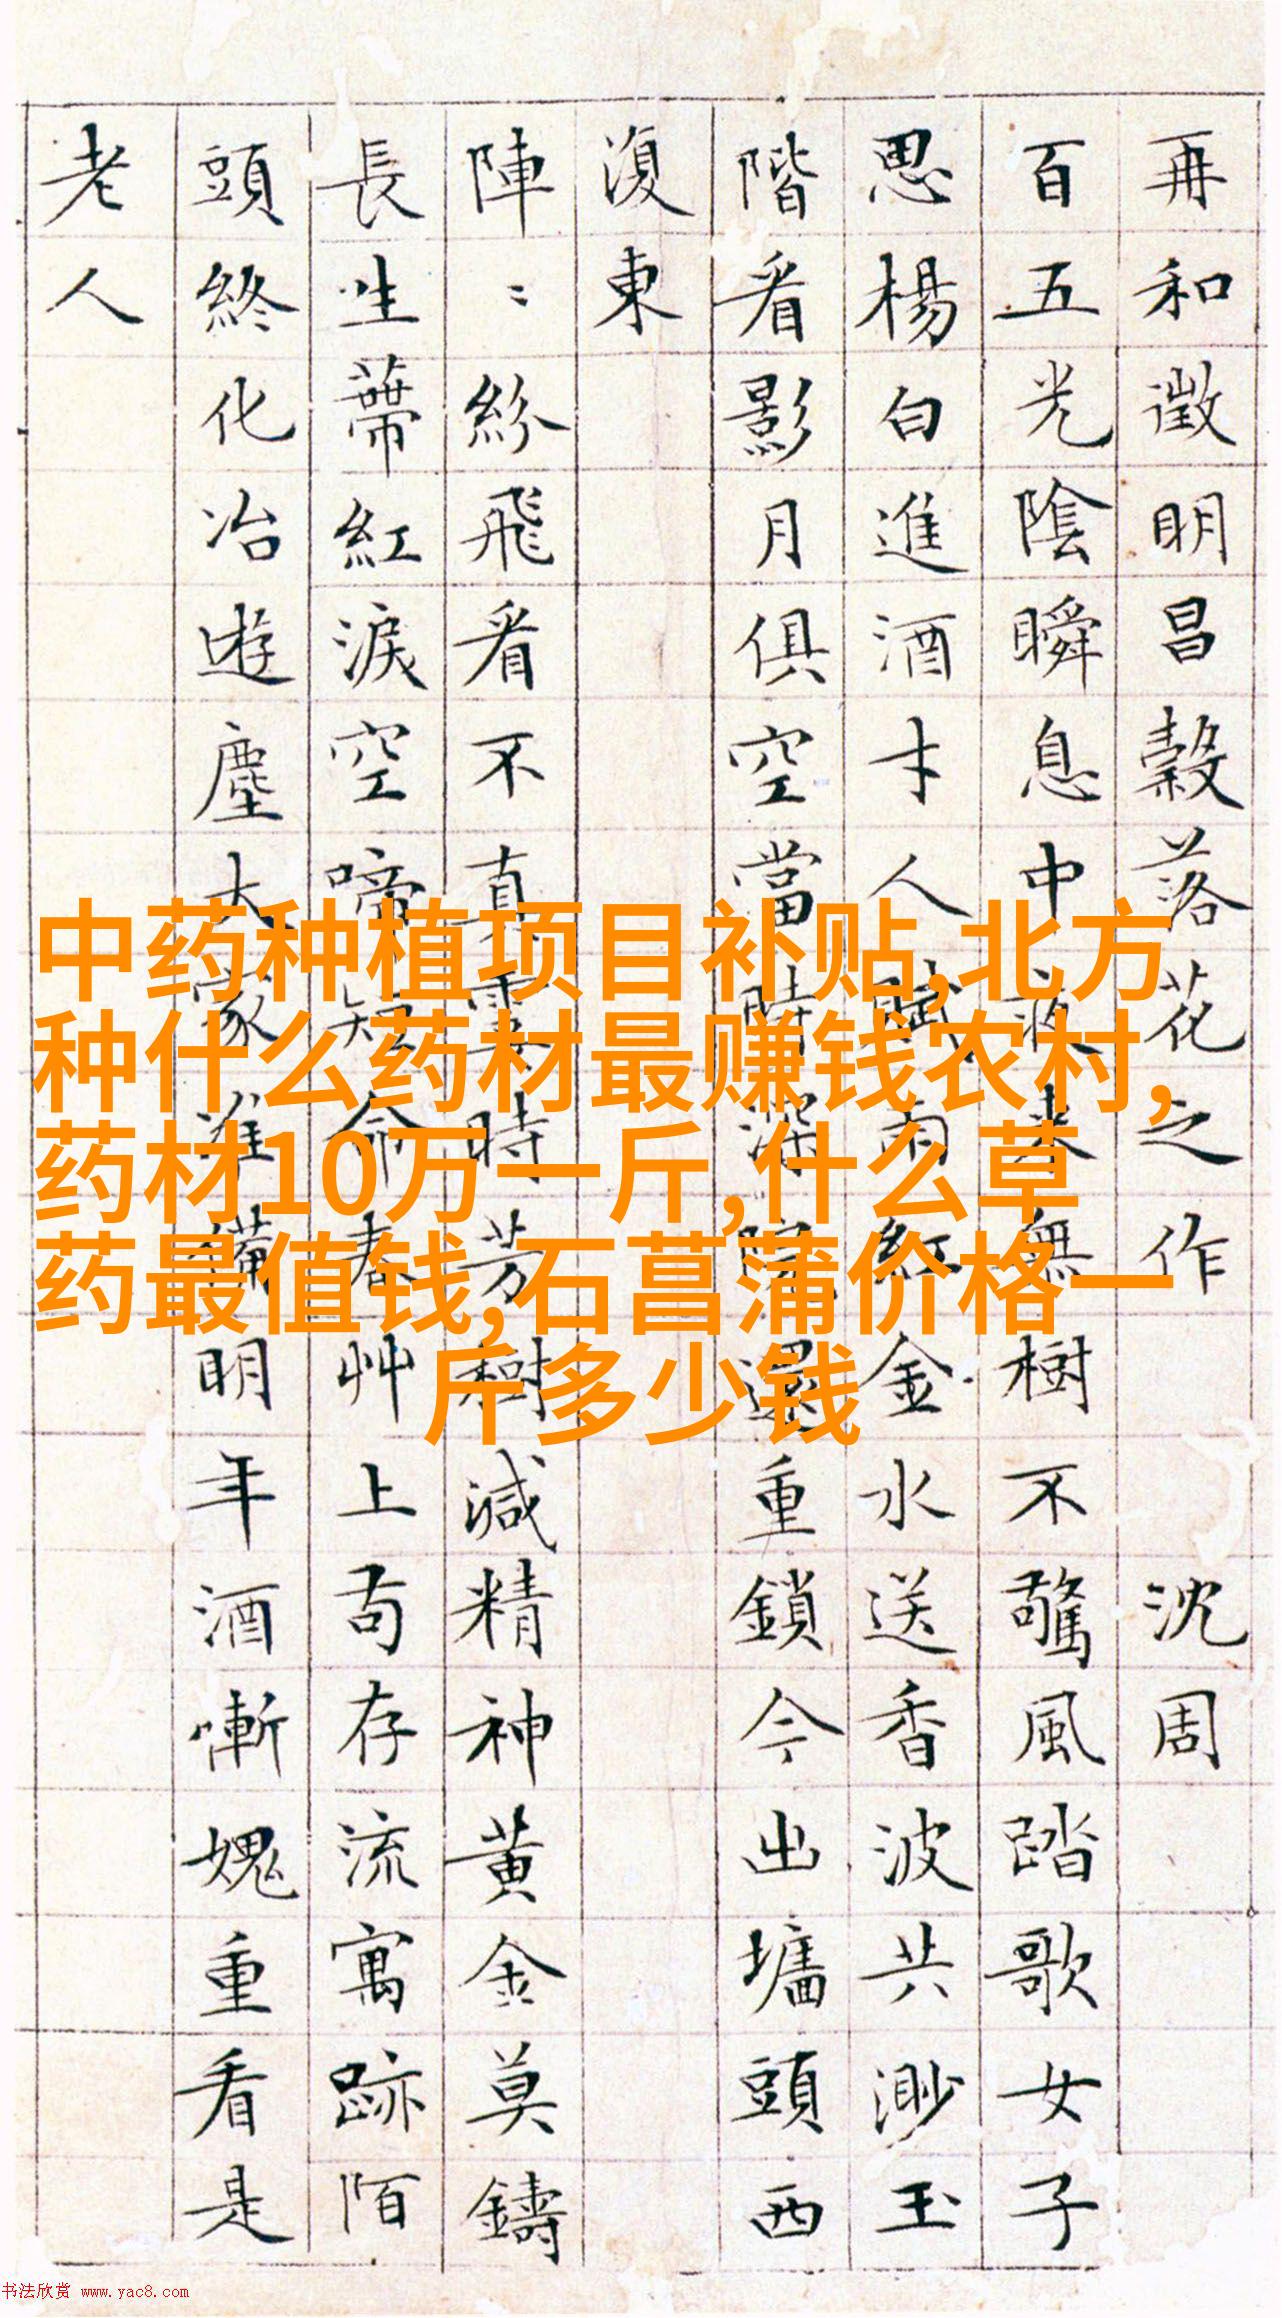 再和徵明昌穀落花之作 沈周
百五光陰瞬息中夜來無樹不驚風踏歌女子
思楊白進酒才人賦雨紅金水送香波共渺玉
階看影月俱空當時深院還重鎖今出墻頭西
復東
陣〻紛飛看不真霎時芳樹減精神黃金莫鑄
長生蒂紅淚空啼短命春艸上苟存流寓跡陌
頭終化冶遊塵大家準備明年酒慚愧重看是
老人
中药种植项目补贴,北方
种什么药材最赚钱农村,
药材10万一斤,什么草
药最值钱,石菖蒲价格一
斤多少钱
书法欣赏 www.yac8.com